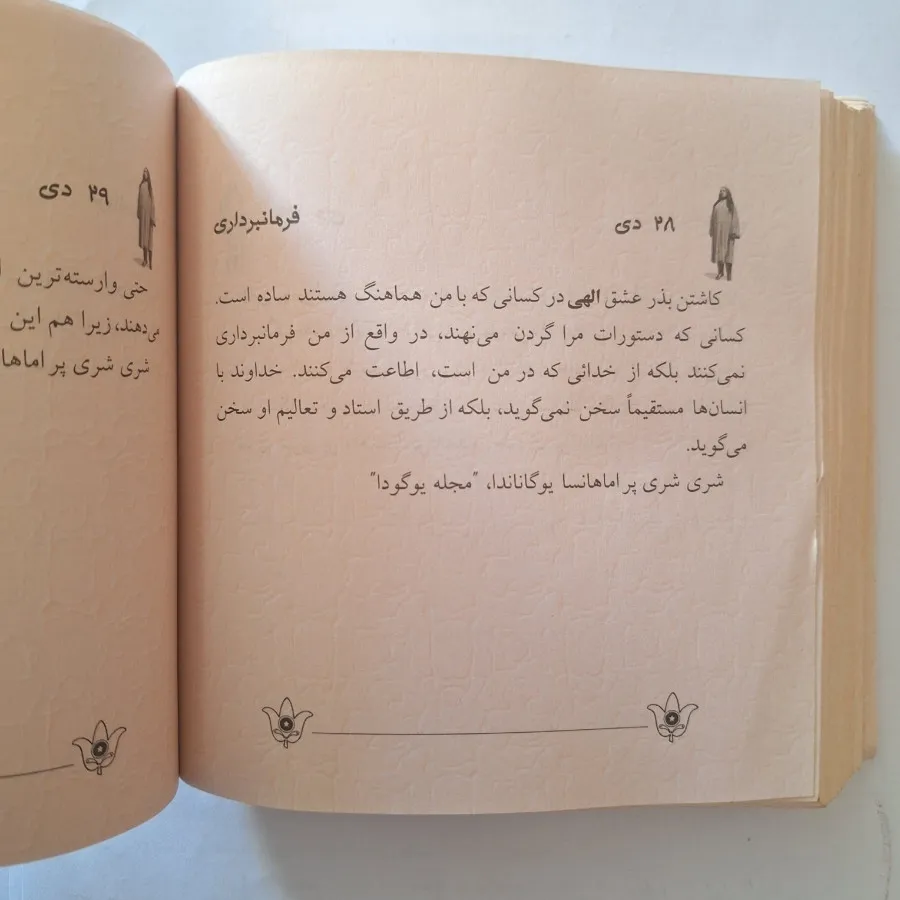 ۲۸ دی
فرمانبرداری
کاشتن بذر عشق الهی در کسانی که با من هماهنگ هستند ساده است.
کسانی که دستورات مرا گردن می‌نهند، در واقع از من فرمانبرداری
نمی‌کنند بلکه از خدائی که در من است، اطاعت می‌کنند. خداوند با
انسان‌ها مستقیماً سخن نمی‌گوید، بلکه از طریق استاد و تعالیم او سخن
می‌گوید.
شری شری پراماهانسا یوگاناندا، "مجله یوگودا"
۲۹ دی
حتی وارسته‌ترین
می‌دهند، زیرا هم این
شری شری پراماها